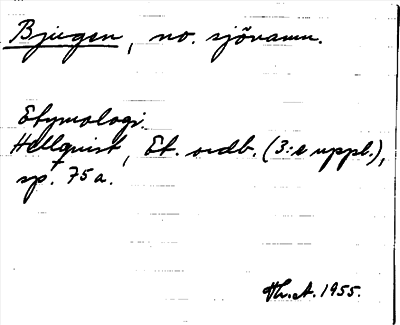 Bjugen, no. sjönamn.
Etymologi.
Hellquist, Et. ordb. (3:e uppl.),
sp. 75a.
Th.A. 1955.